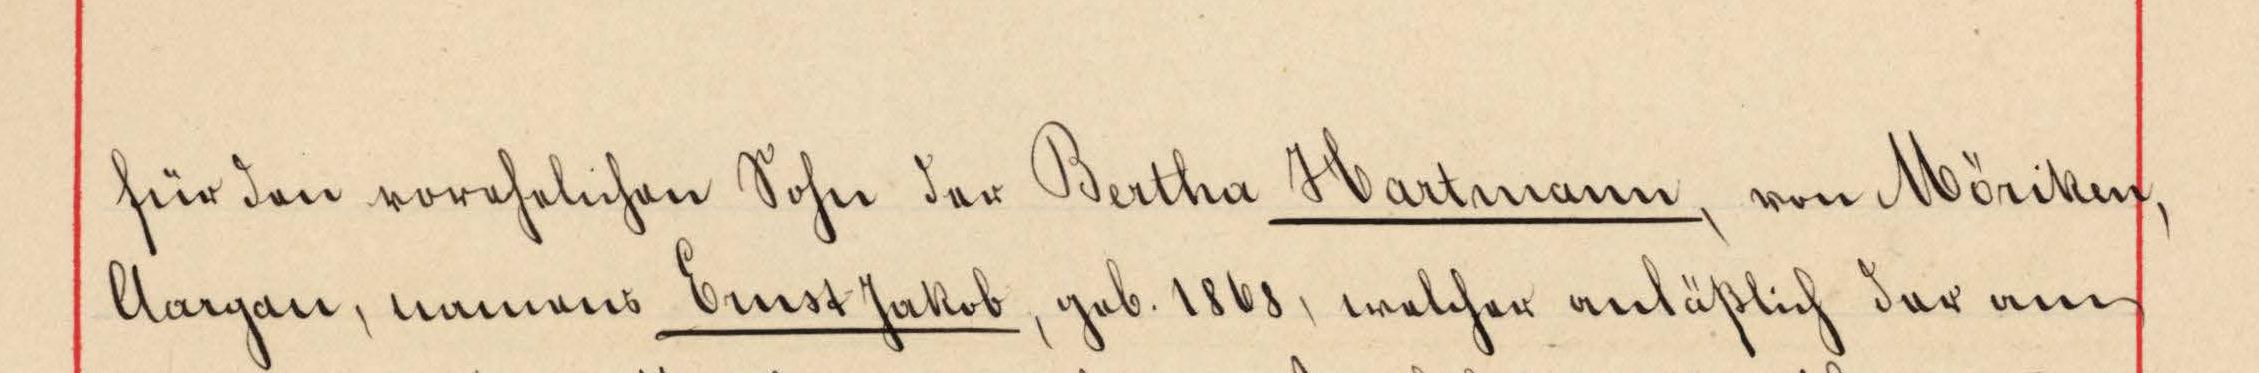 für den vorehelichen Sohn der Bertha Hartmann, von Möriken,
Aargau, namens Ernst Jakob, geb. 1868, welcher anläßlich der am